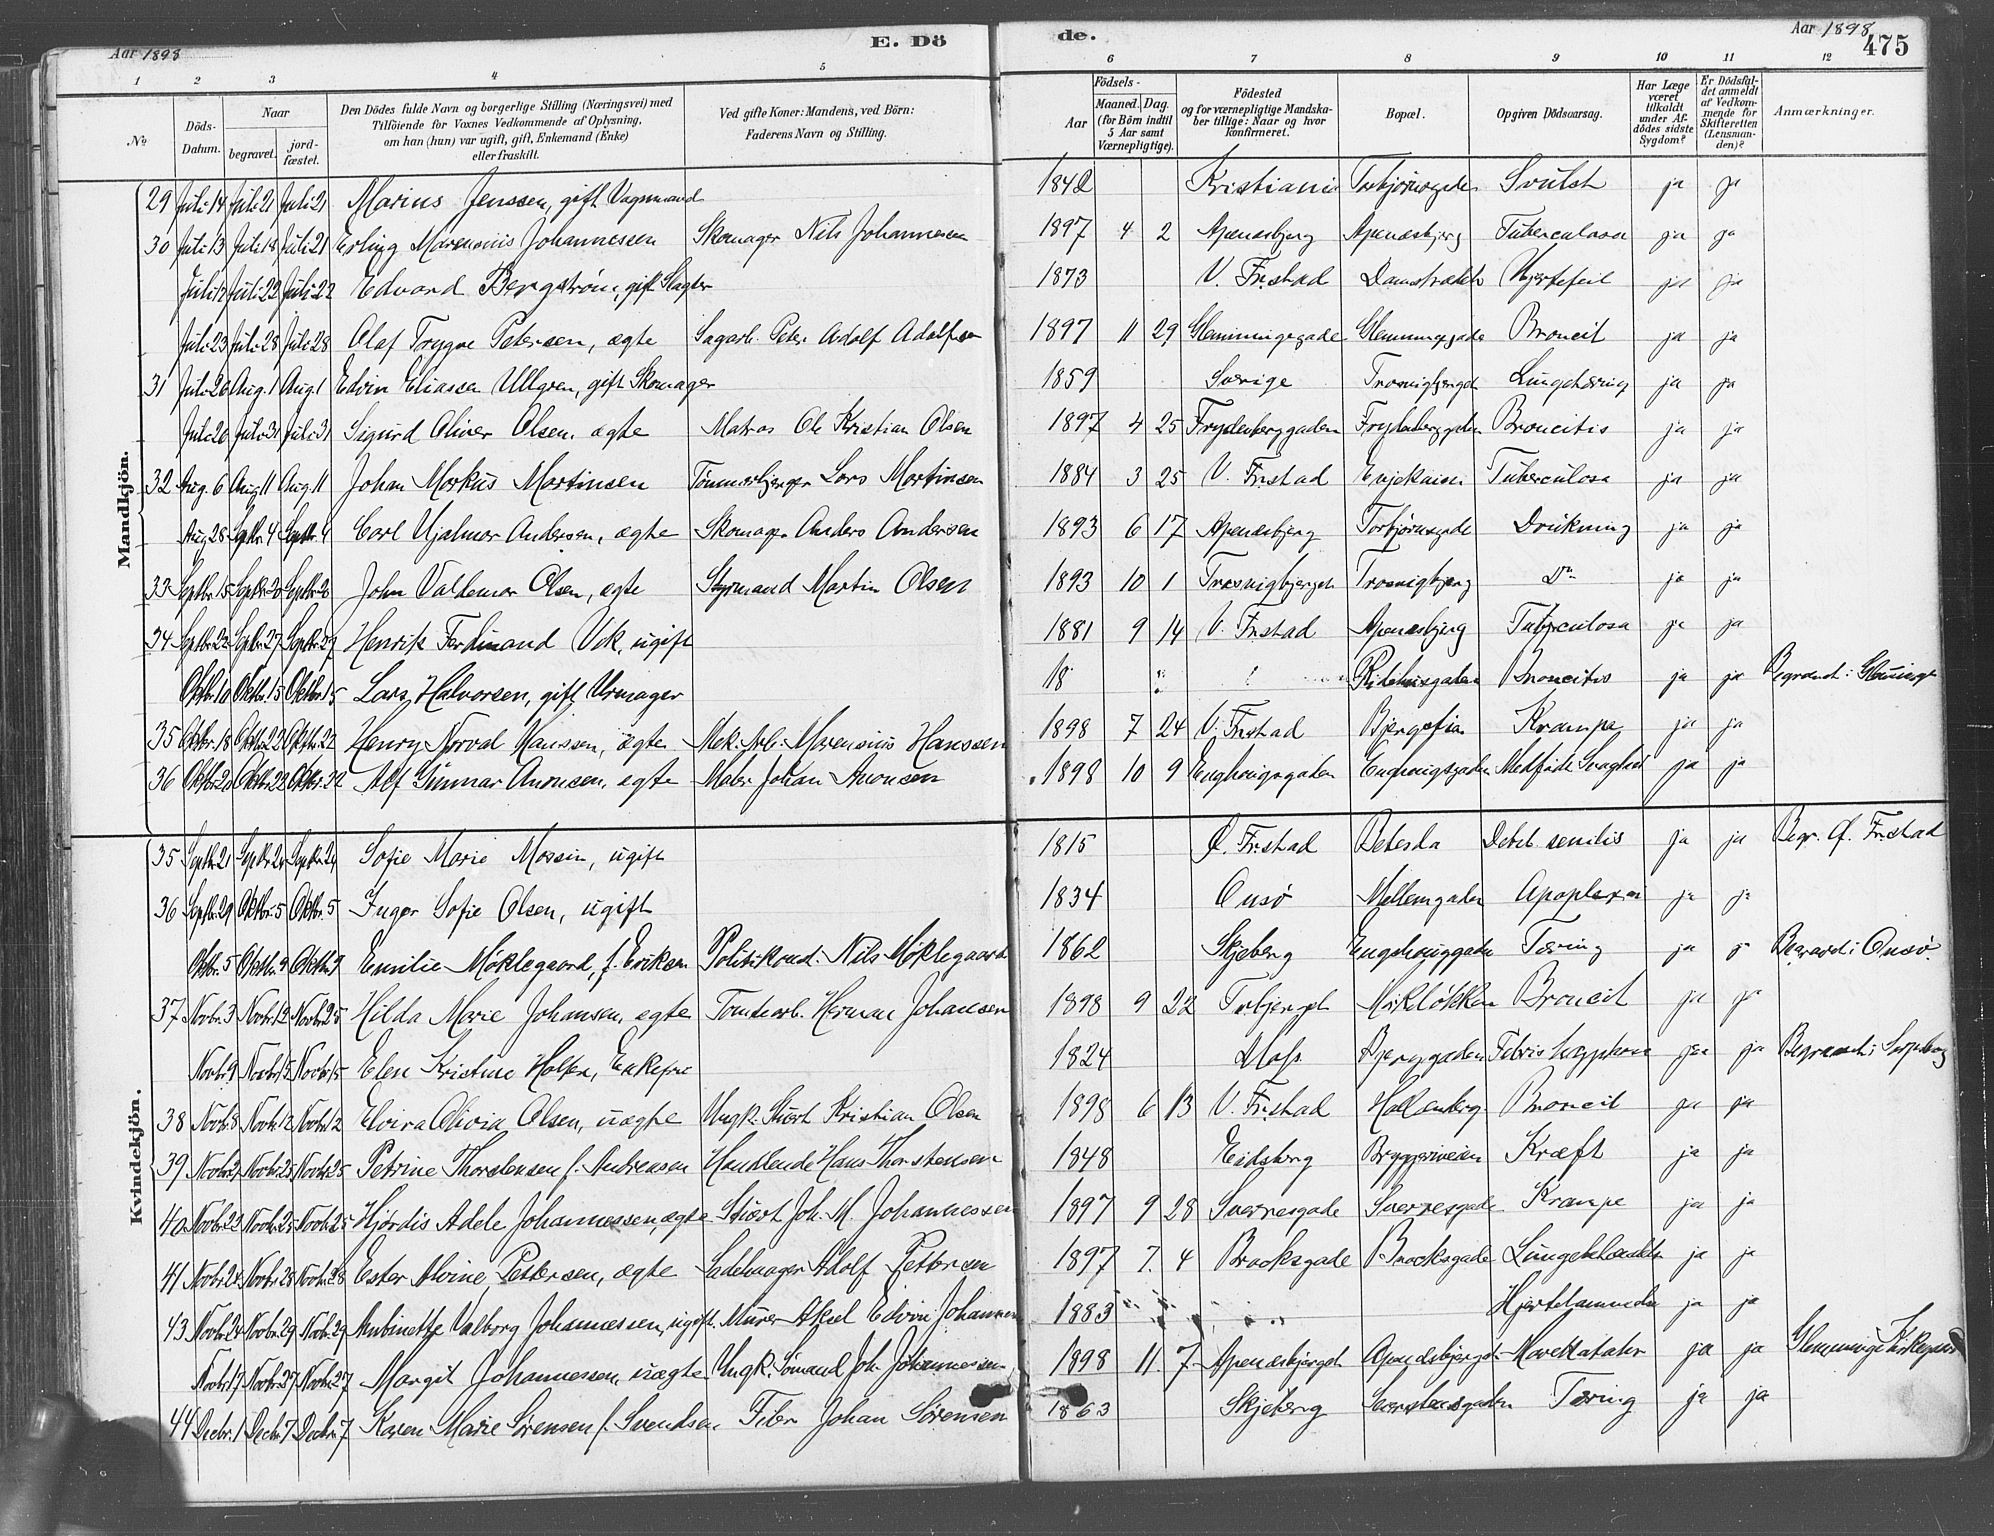 Aar 1898 E. Dö de. Aar 1898 475
1 2 3 4 5 6 7 8 9 10 11 12
No. Döds-Datum. Naar begravet. jordfæstet. Den Dödes fulde Navn og borgerlige Stilling (Næringsvei) med Tilföiende for Voxnes Vedkommende af Oplysning, om han (hun) var ugift, gift, Enkemand (Enke) eller fraskilt. Ved gifte Koner: Mandens, ved Börn: Faderens Navn og Stilling. Födsels- Aar Maaned. Dag. (for Börn indtil 5 Aar samt Værnepligtige). Födested og for værnepligtige Mandskaber tillige: Naar og hvor konfirmeret. Bopæl. Opgiven Dödsaarsag. Har Læge været tilkaldt under Afdödes sidste Sygdom? Er Dödsfaldet anmeldt af Vedkommende for Skifteretten (Lensmanden)? Anmærkninger.
Mandkjön.
29 Juli 14 Juli 21 Juli 21 Marius Jenssen, gift Vognmand 1842 Kristiania Torbjörnsgade Svulst ja ja
30 Juli 13 Juli 18 Juli 21 Erling Marensius Johannessen Skomager Nils Johannesen 1897 4 2 Apenæsbjerg Apenæsbjerg Tuberculosa ja ja
Juli 17 Juli 22 Juli 22 Edvard Bergström, gift Slagter 1873 V. Fr.stad Damstrædet Hjertefeil ja ja
Juli 23 Juli 28 Juli 28 Olaf Trygve Petersen, ægte Sagarb. Peter Adolf Adolfsen 1897 11 29 Glemmingegade Glemmingegade Broncit ja ja
31 Juli 26 Aug. 1 Aug. 1 Edvin Eliassen Ullgren, gift Skomager 1859 Sverige Trosvigbjerget Lungetæring ja ja
Juli 26 Juli 31 Juli 31 Sigurd Oliver Olsen, ægte Matros Ole Kristian Olsen 1897 4 25 Frydenberggaden Frydenberggaden Broncitis ja ja
32 Aug. 6 Aug 11 Aug 11 Johan Markus Martinsen Tömmerhjemper Lars Martinsen 1884 3 25 V. Fr.stad Tuberculosa ja ja
Aug 28 Septbr. 4 Septbr. 4 Carl Hjalmar Andersen, ægte Skomager Anders Andersen 1893 6 17 Apenæsbjerg Torbjörnsgade Drukning ja ja
33 Septbr. 15 Septbr. 20 Septbr. 20 John Valdemar Olsen, ægte Styrmand Martin Olsen 1893 10 1 Trosvigbjerget Trosvigbjerg Do. ja ja
34 Septbr. 22 Septbr. 27 Septbr. 29 Henrik Ferdinand Vik, ugift 1881 9 14 V. Fr.stad Apenæsbjerg Tuberculosa ja ja
Oktbr. 10 Oktbr. 15 Oktbr. 15 Lars Halvorsen, gift Urmager 18 " " Ridehusgaden Broncitis ja ja Begravet i Glemminge
35 Oktbr. 18 Oktbr. 22 Oktbr. 22 Henry Norval Hanssen, ægte Mek. Arb. Marensius Hanssen 1898 7 24 V. Fr.stad Bjergelia Krampe ja ja
36 Oktbr. 20 Oktbr. 22 Oktbr. 22 Alf Gunnar Aronsen, ægte Maler Johan Aronsen 1898 10 9 Enghaugsgaden Enghaugsgaden Medfödt Svaghed ja ja
Kvindekjön.
35 Septbr. 21 Septbr. 24 Septbr. 24 Sofie Marie Mossin, ugift 1815 Ø. Fr.stad Betesda Debil. senilis ja ja Begr. Ø. Fr.stad
36 Septbr. 29 Oktbr. 5 Oktbr. 5 Inger Sofie Olsen, ugift 1834 Onsö Mellemgaden Apoplexia ja ja
Oktbr. 5 Oktbr. 9 Oktbr. 9 Emilie Möklegaard, f. Eriksen Politikonst. Nils Möklegaard 1862 Skjeberg Enghauggaden Tæring ja j Begravet i Onsö
37 Novbr. 3 Novbr. 12 Novbr. 25 Hilda Marie Johansen, ægte Tomtearb. Herman Johansen 1898 9 22 Mørkløkken Broncit ja ja
Novbr. 9 Novbr. 15 Novbr. 15 Elen Kristine Holsen, Enkefru 1824 Moss Bjerggaden Febris ja ja Begravet i Sarpsborg
38 Novbr. 8 Novbr. 12 Novbr. 12 Elvira Olivia Olsen, uægte Ungk. Stuert Kristian Olsen 1898 6 13 V. Fr.stad Hollenberg Broncit ja ja
39 Novbr. 21 Novbr. 25 Novbr. 25 Petrine Thorstensen f. Andreasen Handlende Hans Thorstensen 1848 Eidsberg Bryggeriveien Kræft ja ja
40 Novbr. 23 Novbr. 25 Novbr. 25 Hjördis Adele Johannessen, ægte Stuert Joh. M. Johannessen 1897 9 28 Sverresgade Sverresgade Krampe ja ja
41 Novbr. 24 Novbr. 28 Novbr. 28 Ester Alvine Pettersen, ægte Sadelmager Adolf Pettersen 1897 7. 4 Brochsgade Brochsgade ja ja
43 Novbr. 24 Novbr. 29 Novbr. 29 Valborg Johannessen, ugift. Murer Aksel Edvin Johannesen 1883 " " " " Hjertelammelse ja ja
Novbr. 17 Novbr. 27 Novbr. 27 Margit Johannessen, uægte Ungk. Sömand Joh. Johannessen 1898 11. 7 Apenæsbjerget Apenæsbjerget Mavekatahr ja ja Glemminge Kirkegaard
44 Decbr. 1 Decbr. 7 Decbr. 7 Karen Marie Sörensen f. Svendsen Johan Sörensen 1863 Skjeberg Tæring ja ja